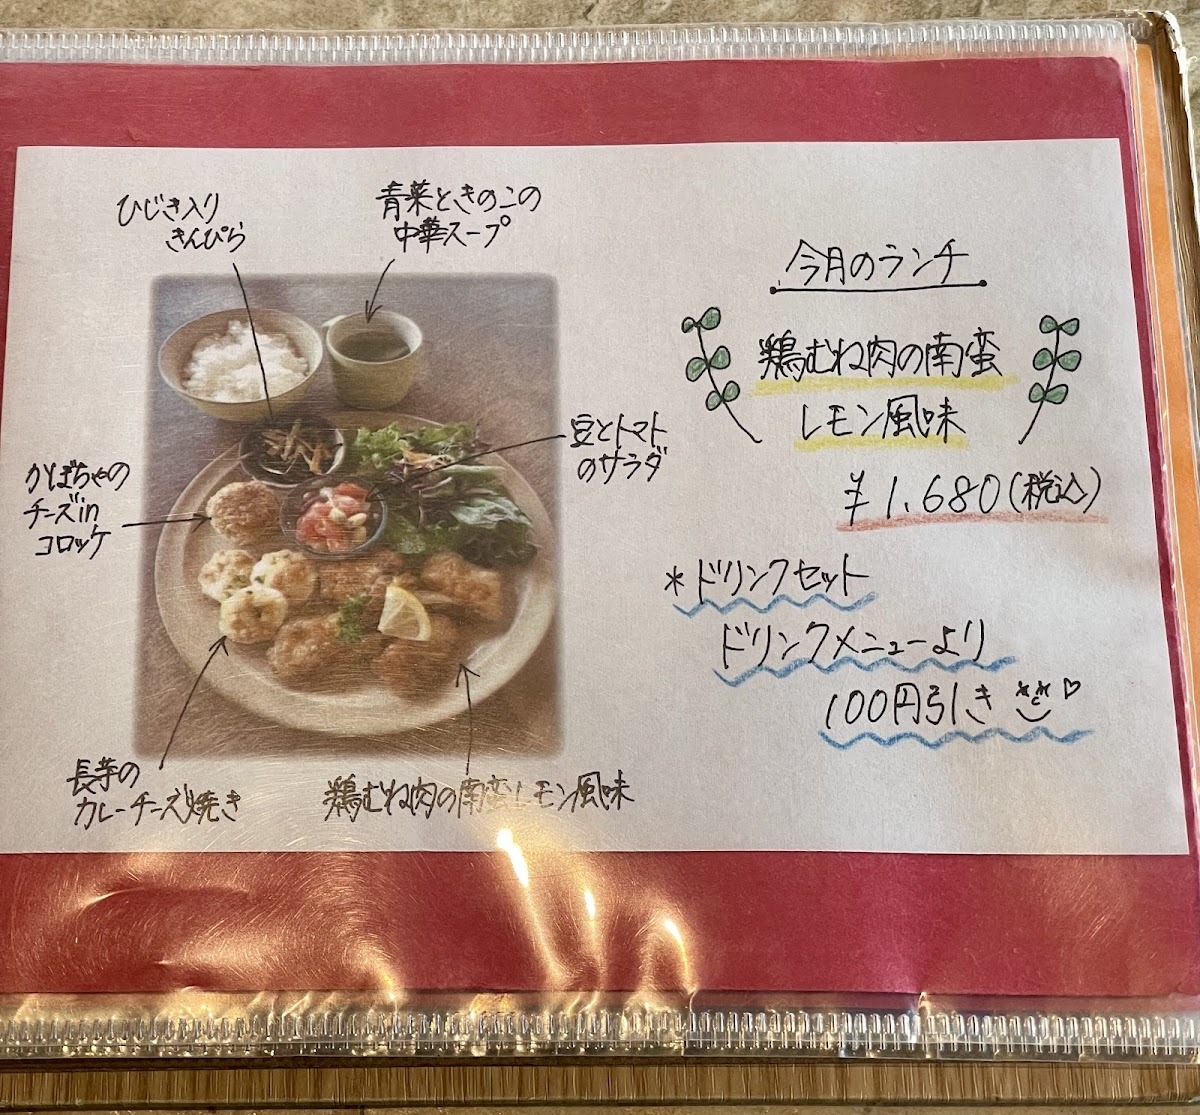 ひじき入り
きんぴら
青菜ときのこの
中華スープ
かぼちゃの
チーズin
コロッケ
豆とトマト
のサラダ
長芋の
カレーチーズ焼き
鶏むね肉の南蛮レモン風味
今月のランチ
鶏むね肉の南蛮
レモン風味
¥1,680(税込)
*ドリンクセット
ドリンクメニューより
100円引き